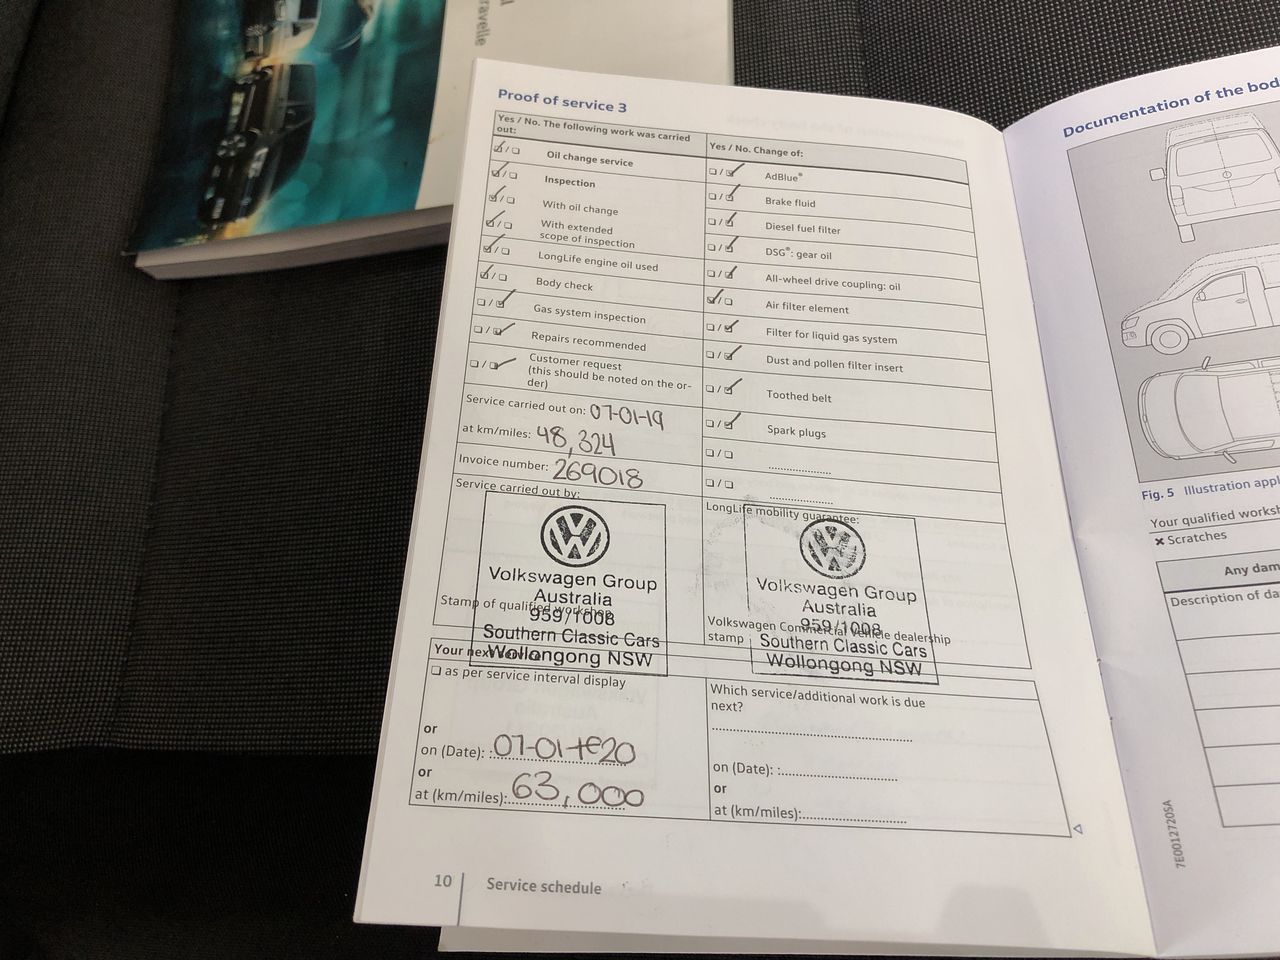 ravelle
Proof of service 3
Yes / No. The following work was carried out:
Oil change service
Inspection
With oil change
With extended
scope of inspection
LongLife engine oil used
Body check
Gas system inspection
Repairs recommended
Customer request
(this should be noted on the or-
der)
Service carried out on: 07-01-19
at km/miles: 48,324
Invoice number: 269018
Service carried out by:
Volkswagen Group
Australia
959/1008
Southern Classic Cars
Wollongong NSW
Stamp of qualified workshop
Yes / No. Change of:
AdBlue®
Brake fluid
Diesel fuel filter
DSG®: gear oil
All-wheel drive coupling: oil
Air filter element
Filter for liquid gas system
Dust and pollen filter insert
Toothed belt
Spark plugs
LongLife mobility guarantee:
Volkswagen Group
Australia
959/1008
Southern Classic Cars
Wollongong NSW
Volkswagen Commercial Vehicle dealership
stamp
Your next service
as per service interval display
or
on (Date): 07-01-20
or
at (km/miles): 63,000
Which service/additional work is due
next?
on (Date):
or
at (km/miles):
10 Service schedule
Documentation of the bod
Fig. 5 Illustration appl
Your qualified worksh
✗ Scratches
Any dam
Description of da
7E0012720SA